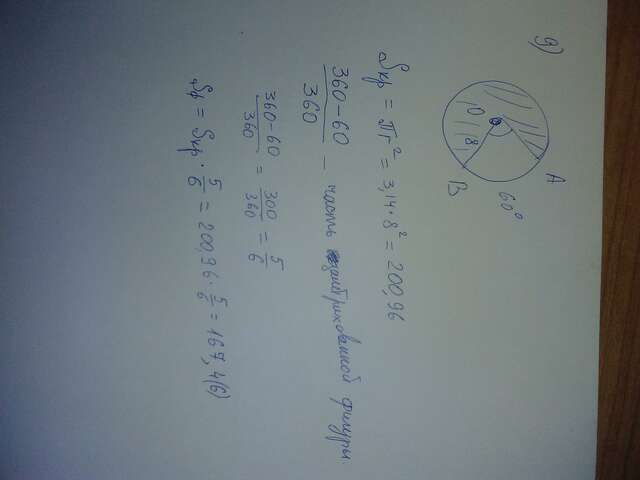 g)
A
O
8
B
60°
Sкр = πr² = 3,14·8² = 200,96
360-60/360 - часть заштрихованной фигуры
360-60/360 = 300/360 = 5/6
Sф = Sкр · 5/6 = 200,96 · 5/6 = 167,4(6)